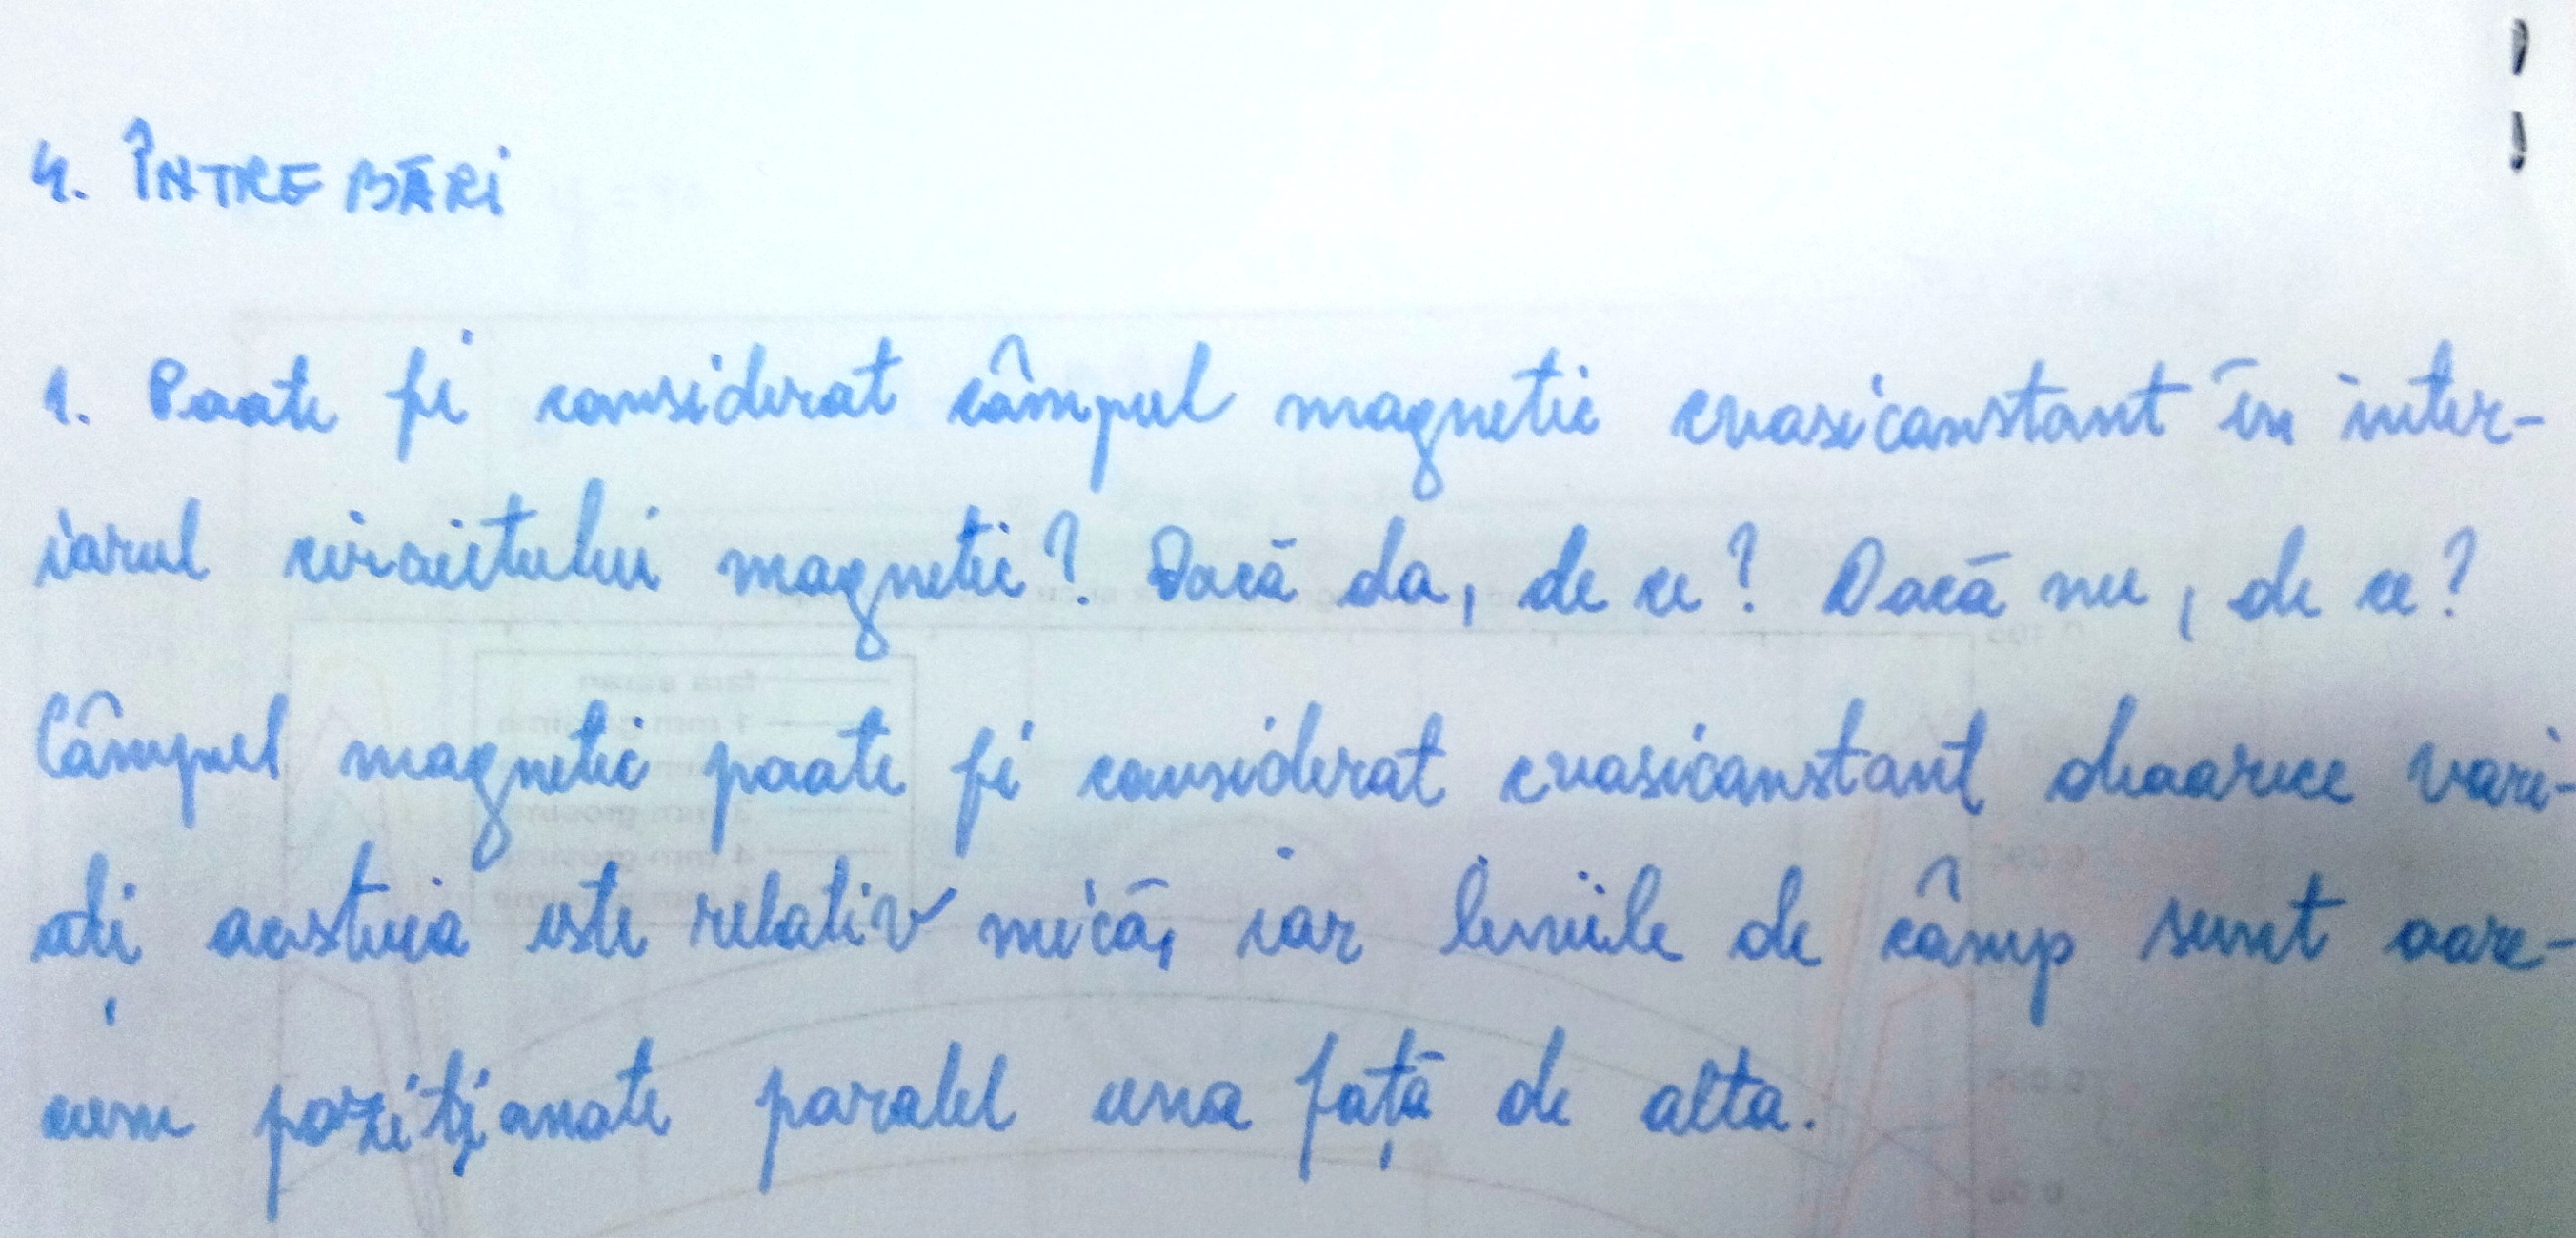 4. ÎNTREBĂRI
1. Poate fi considerat câmpul magnetic cvasiconstant în inter-
iorul circuitului magnetic? Dacă da, de ce? Dacă nu, de ce?
Câmpul magnetic poate fi considerat cvasiconstant deoarece vari-
ați acestuia este relativ mică, iar liniile de câmp sunt oare-
cum poziționate paralel una față de alta.